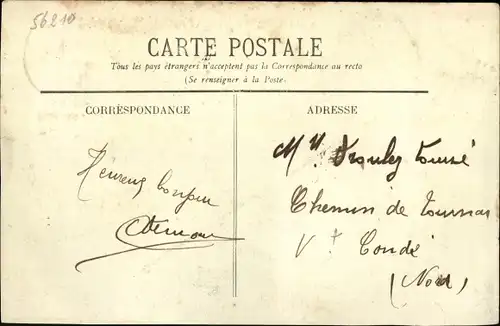 56210
CARTE POSTALE
Tous les pays étrangers n'acceptent pas la Correspondance au recto
(Se renseigner à la Poste.
CORRESPONDANCE
ADRESSE
Heureux
Chemin de Tournai
Vx Condé
(Nord)